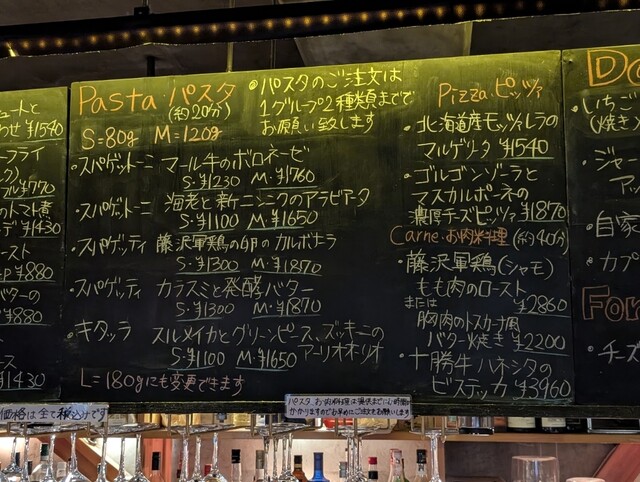 ュートと
わせ ¥1540
ーフライ
ク)
ブル ¥770
のトマト煮
¥1430
ースト
¥880
バターの
¥880
ース
¥1430
Pasta パスタ
(約20分)
S=80g M=120g
•パスタのご注文は
1グループ2種類までで
お願い致します
•スパゲットーニ マール牛のボロネーゼ
S・¥1230 M・¥1760
•スパゲットーニ 海老と新ニンニクのアラビアータ
S・¥1100 M・¥1650
•スパゲッティ 藤沢軍鶏の卵のカルボナーラ
S・¥1300 M・¥1870
•スパゲッティ カラスミと発酵バター
S・¥1300 M・¥1870
•キタッラ スルメイカとグリーンピース、ズッキーニの
アーリオオーリオ
S・¥1100 M・¥1650
L=180gにも変更できます
Pizza ピッツァ
•北海道産モッツァレラの
マルゲリータ ¥1540
•ゴルゴンゾーラと
マスカルポーネの
濃厚チーズピッツァ ¥1870
Carne・お肉料理 (約40分)
•藤沢軍鶏(シャモ)
もも肉のロースト
または ¥2860
胸肉のトスカーナ風
バター焼き ¥2200
•十勝牛ハネシタの
ビステッカ ¥3960
Do
•いちご
(焼き
•ジャー
アッ
•自家
•カプ
For
•チーズ
価格は全て税込みです
パスタ、お肉料理は提供までにお時間が
かかりますのでお早めにご注文をお願いします